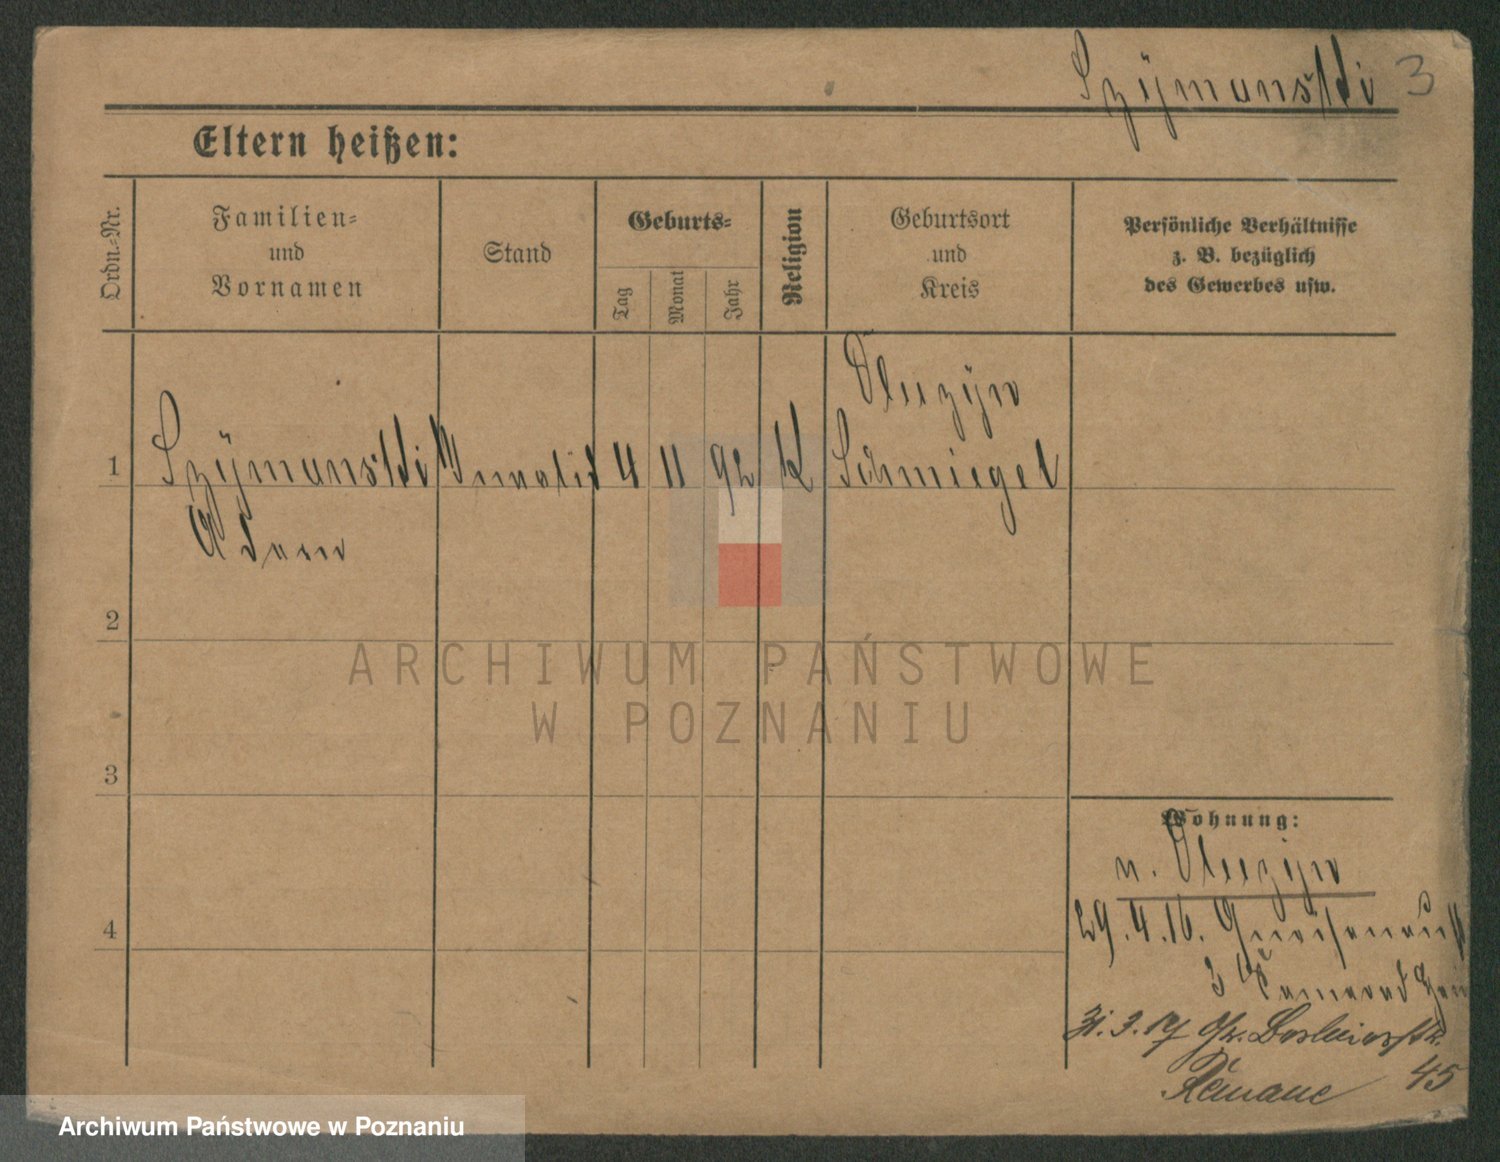 Szymanski 3
Eltern heißen:
Ordn.=Nr.
Familien=
und
Vornamen
Stand
Geburts=
Tag
Monat
Jahr
Religion
Geburtsort
und
Kreis
Persönliche Verhältnisse
z. B. bezüglich
des Gewerbes usw.
1
Szymanski
Adam
Invalid
4
11
92
K
Oluzyn
Schmiegel
2
3
4
Wohnung:
n. Oluzyn
29. 4. 16. Gneisenaustr
3
31. 3. 17
45
ARCHIWUM PAŃSTWOWE
W POZNANIU
Archiwum Państwowe w Poznaniu